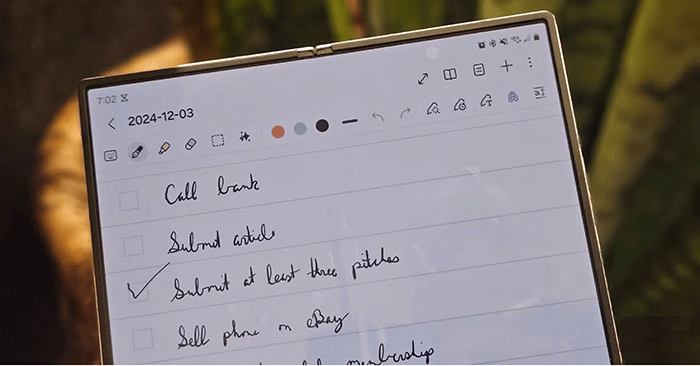 7:02
2024-12-03
Call bank
Submit article
Submit at least three pitches
Sell phone on eBay
membership